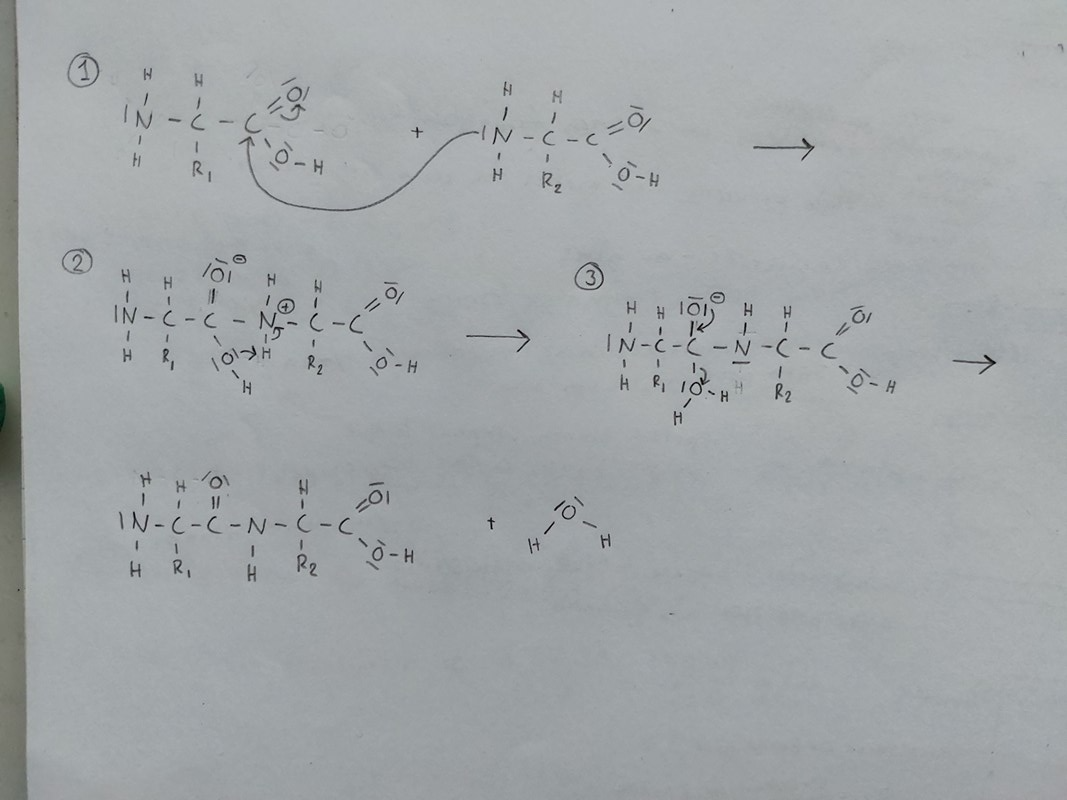 ①
H H O
N - C - C = O
H R₁ O - H
+
H H O
N - C - C = O
H R₂ O - H
→
②
H H O⊖ H H O
N - C - C - N⊕ - C - C
H R₁ O H R₂ O - H
H
→
③
H H O⊖ H H O
N - C - C - N - C - C
H R₁ O - H H R₂ O - H
H
→
H H O H O
N - C - C - N - C - C
H R₁ H R₂ O - H
+
O
H H